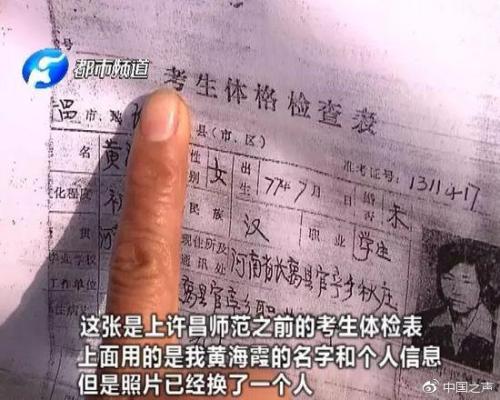 都市频道
考生体格检查表
市
县(市、区)
准考证号:1311417
名 黄 女 出生 77年9月 日 未
民族 汉 职业 学生
现住所及通讯处 河南省长葛县官亭乡秋庄
毕业学校
工作单位
这张是上许昌师范之前的考生体检表
上面用的是我黄海霞的名字和个人信息
但是照片已经换了一个人
@中国之声